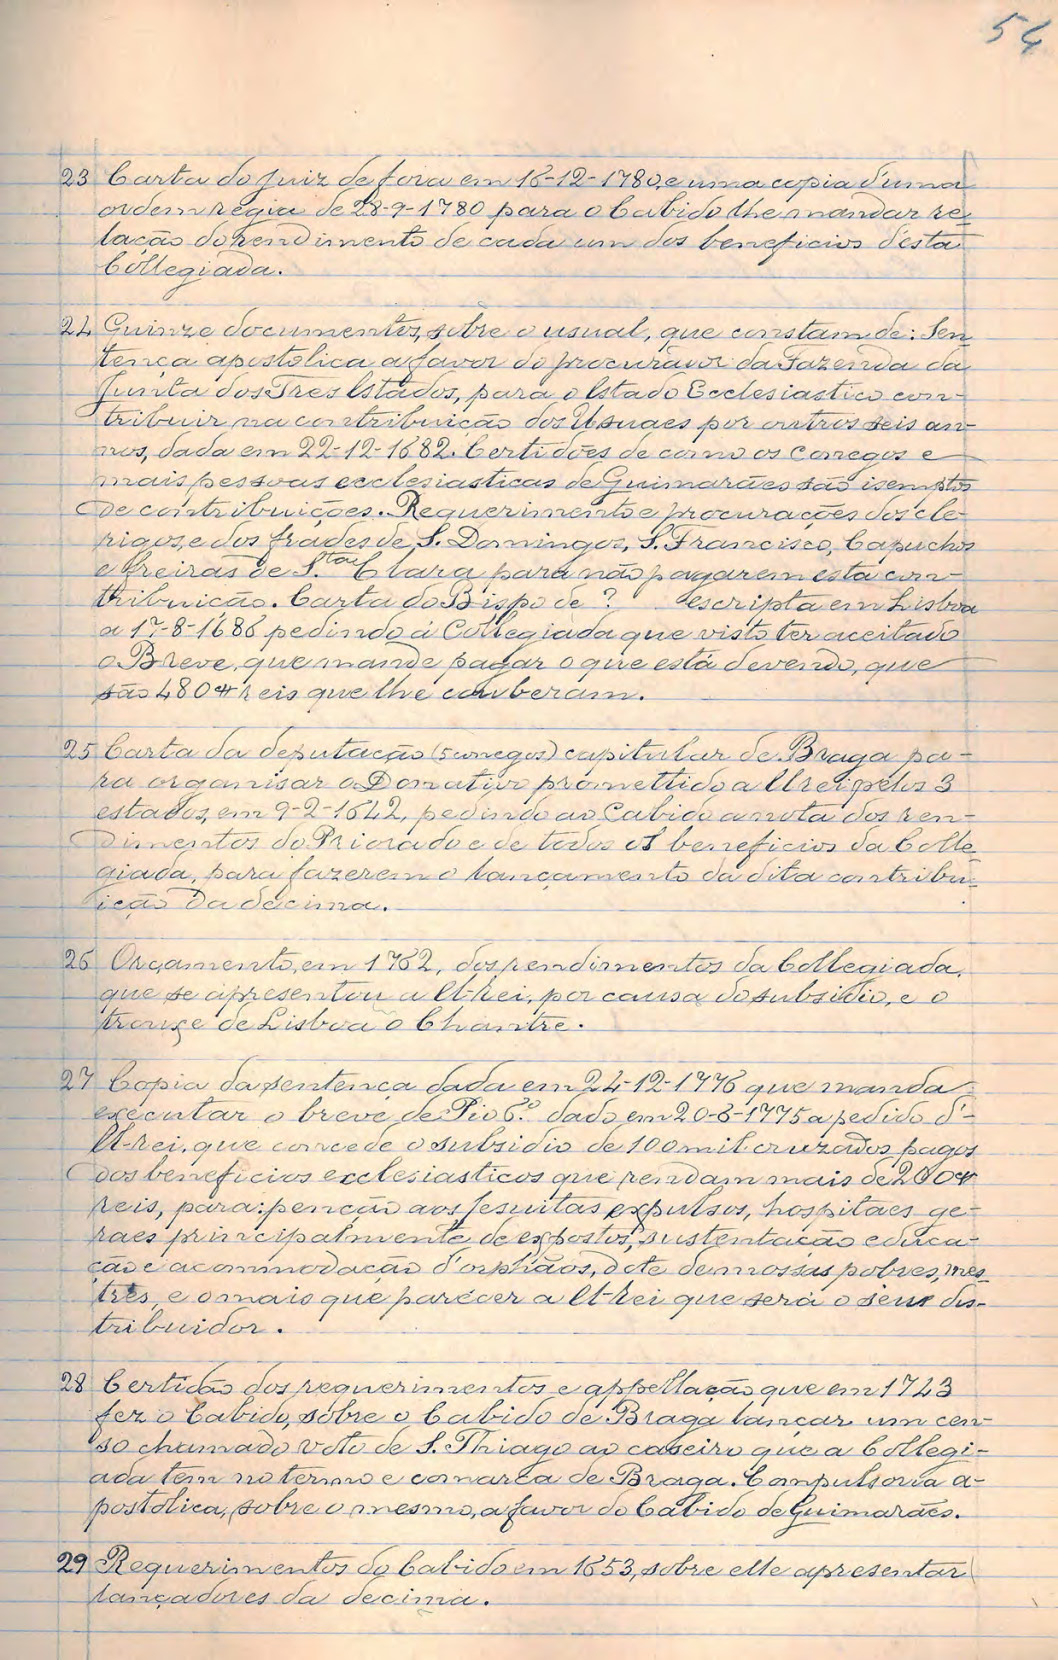 54
23 Carta do Juiz de fora em 16-12-1780, e uma copia d'uma
ordem regia de 28-9-1780 para o Cabido lhe mandar re-
lação do rendimento de cada um dos beneficios d'esta
Collegiada.
24 Quinze documentos, sobre o usual, que constam de: Sen-
tença apostolica a favor do procurador da Fazenda da
Junta dos Tres Estados, para o Estado Ecclesiastico con-
tribuir na contribuição dos Usuaes por outros seis an-
nos, dada em 22-12-1682. Certidões de como os Conegos e
mais pessoas ecclesiasticas de Guimarães são isemptos
de contribuições. Requerimento e procurações dos cle-
rigos, e dos frades de S. Domingos, S. Francisco, Capuchos
e freiras de S.ta Clara para não pagarem esta con-
tribuição. Carta do Bispo de ? escripta em Lisboa
a 17-8-1686 pedindo á Collegiada que visto ter aceitado
o Breve, que mande pagar o que está devendo, que
são 480$reis que lhe couberam.
25 Carta da deputação (5 conegos) capitular de Braga pa-
ra organisar o Donativo promettido a El rei pelos 3
estados, em 9-2-1642, pedindo ao Cabido a nota dos ren-
dimentos do Priorado e de todos os beneficios da Colle-
giada, para fazerem o lançamento da dita contribu-
ição da decima.
26 Orçamento, em 1762, dos rendimentos da Collegiada,
que se apresentou a El-rei, por causa do subsidio, e o
trouxe de Lisboa o Chantre.
27 Copia da sentença dada em 24-12-1776 que manda
executar o breve de Pio 6.º dado em 20-6-1775 a pedido d'-
El-rei, que concede o subsidio de 100 mil cruzados pagos
dos beneficios ecclesiasticos que rendam mais de 200$
reis, para: penção aos Jesuitas expulsos, hospitaes ge-
raes principalmente de expostos, sustentação educa-
ção e acommodação d'orphãos, dote de mossas pobres, mes-
tres, e o mais que parecer a El-rei que será o seu dis-
tribuidor.
28 Certidão dos requerimentos e appellação que em 1743
fez o Cabido, sobre o Cabido de Braga lançar um cen-
so chamado voto de S. Thiago ao caseiro que a Collegi-
ada tem no termo e comarca de Braga. Compulsoria a-
postolica, sobre o mesmo, a favor do Cabido de Guimarães.
29 Requerimentos do Cabido em 1653, sobre elle apresentar
lançadores da decima.